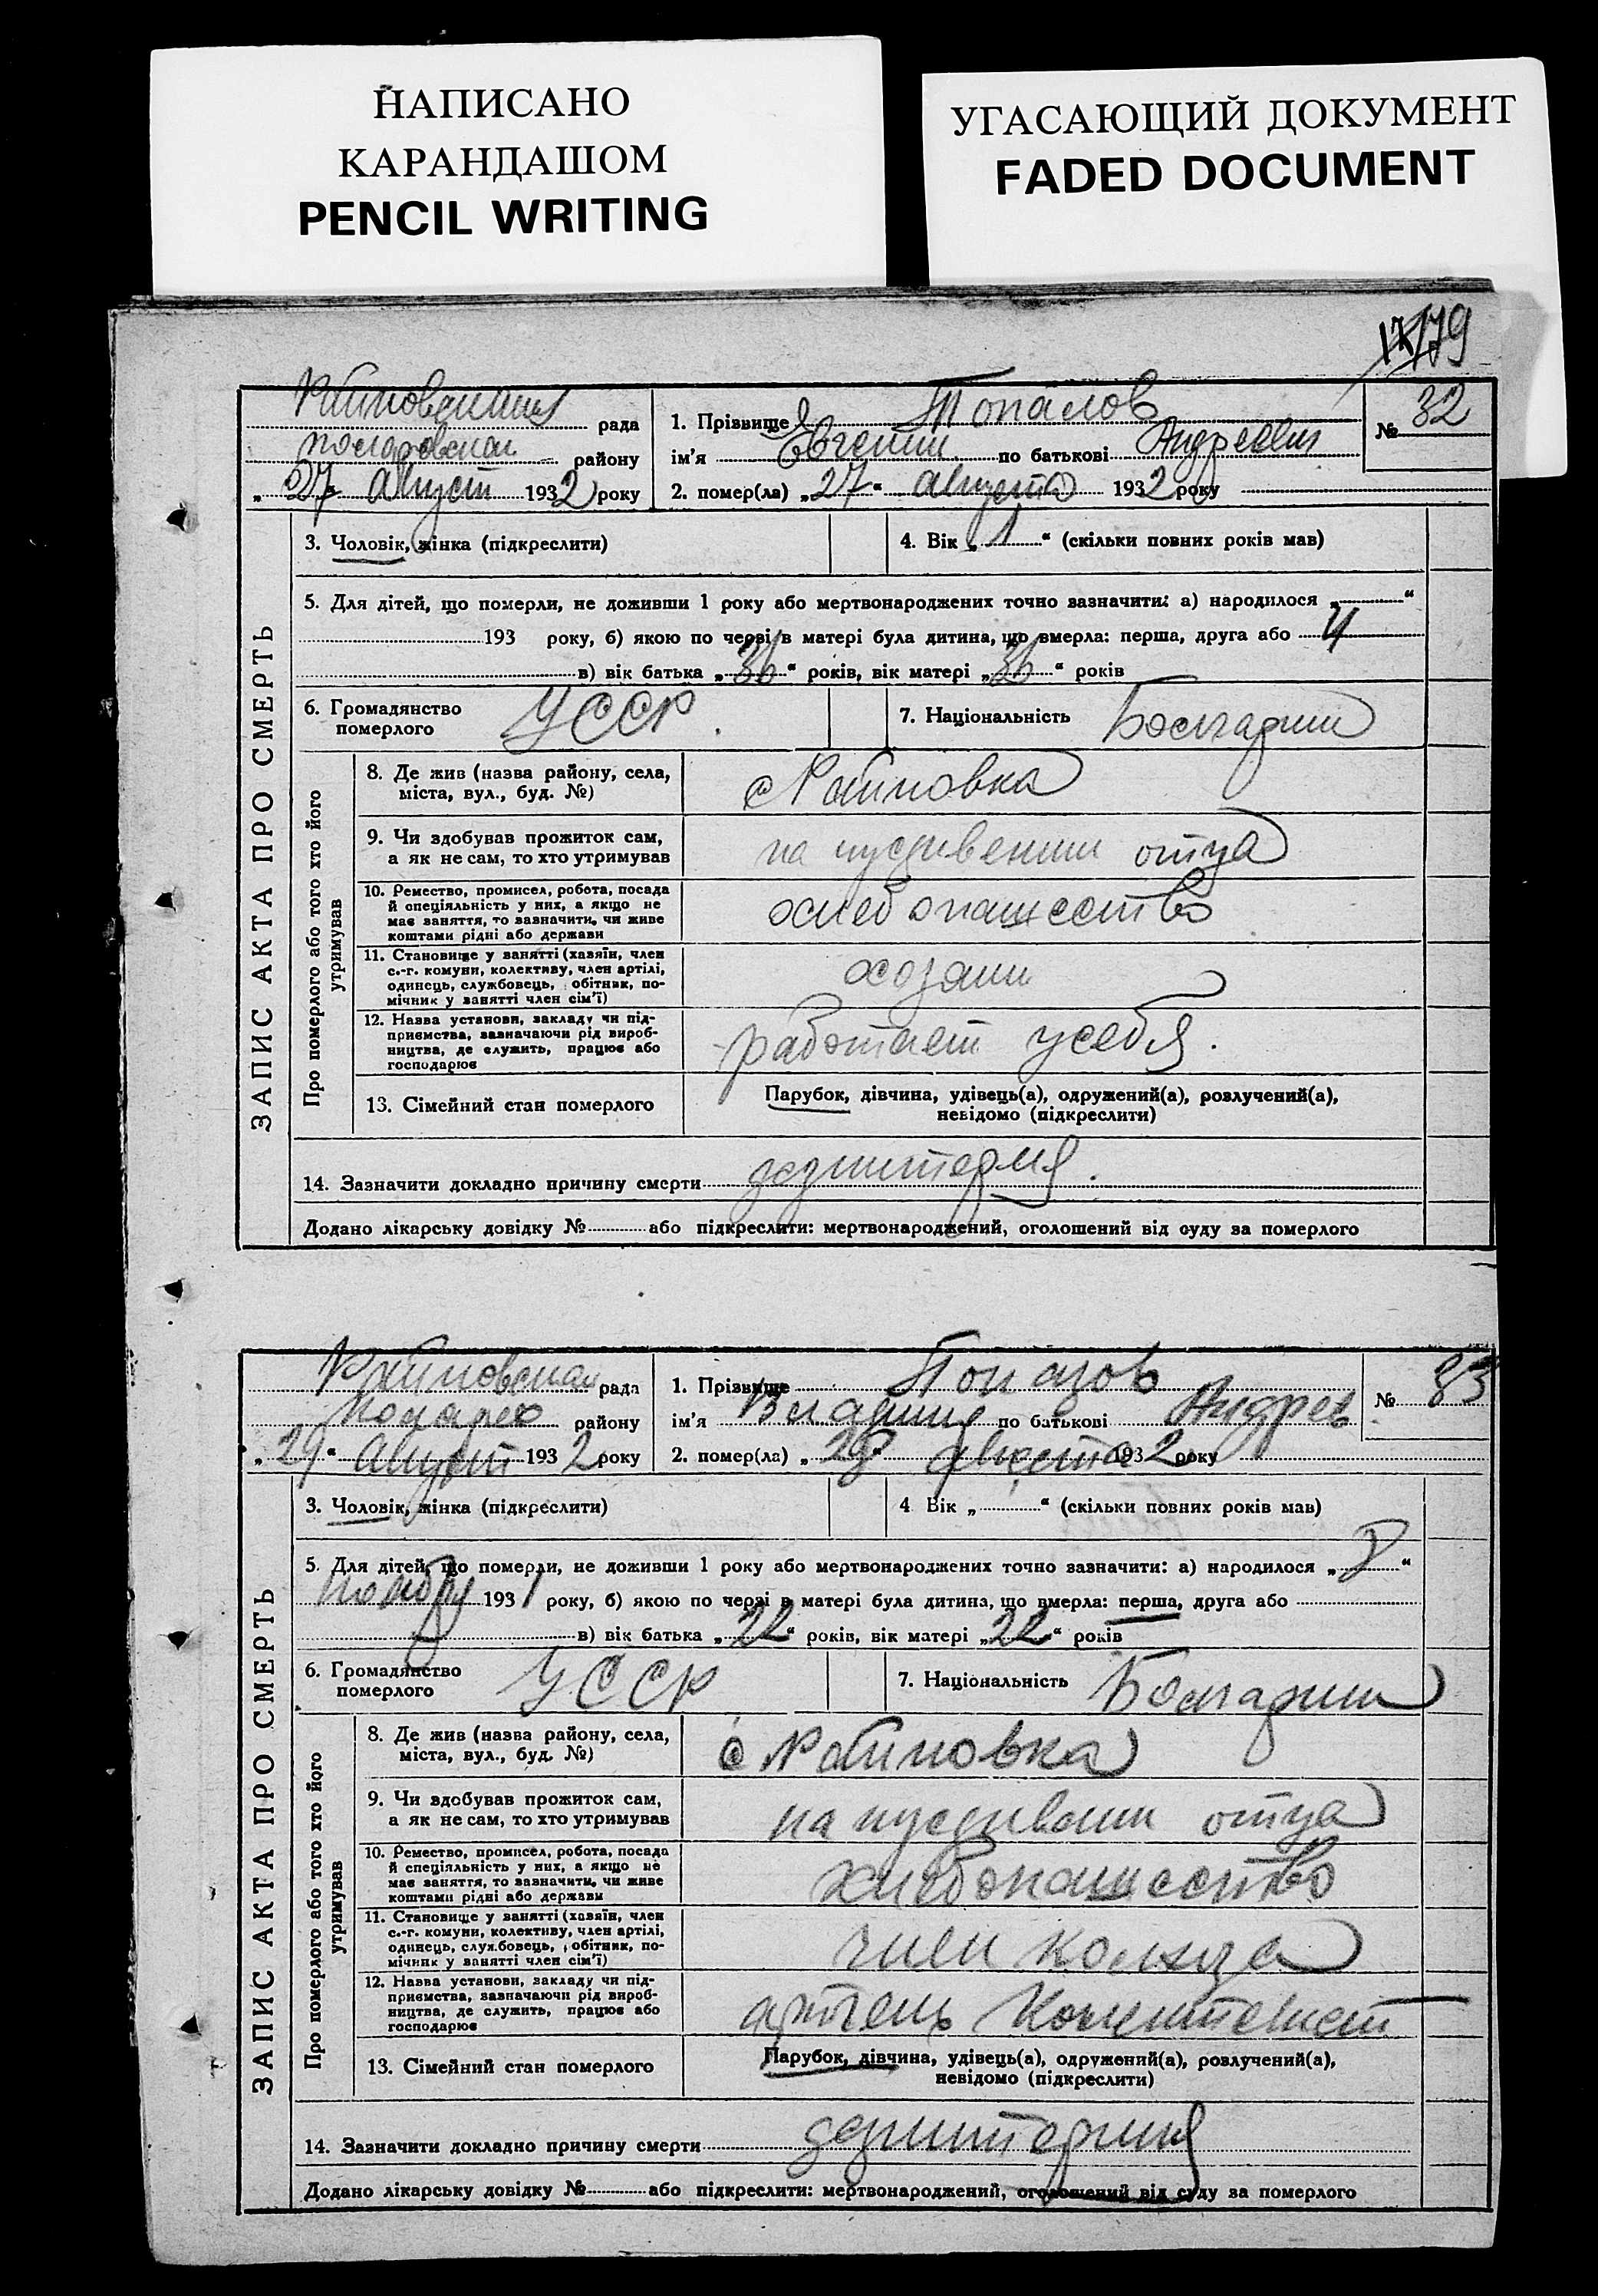 НАПИСАНО
КАРАНДАШОМ
PENCIL WRITING
УГАСАЮЩИЙ ДОКУМЕНТ
FADED DOCUMENT
179
ЗАПИС АКТА ПРО СМЕРТЬ
рада
району
„27“ Август 1932 року
1. Прізвище Топалов
ім'я Евгений по батькові Андреевич
2. помер(ла) „27“ Августа 1932 року
№ 32
3. Чоловік, жінка (підкреслити)
4. Вік „1“ (скільки повних років мав)
5. Для дітей, що померли, не доживши 1 року або мертвонароджених точно зазначити: а) народилося „ “
193 року, б) якою по черзі в матері була дитина, що вмерла: перша, друга або 4
в) вік батька „36“ років, вік матері „36“ років
6. Громадянство
померлого
УССР
7. Національність Болгарин
Про померлого або того хто його
утримував
8. Де жив (назва району, села,
міста, вул., буд. №)
с Райновка
9. Чи здобував прожиток сам,
а як не сам, то хто утримував
на иждивении отца
10. Ремество, промисел, робота, посада
й спеціяльність у них, а якщо не
має заняття, то зазначити, чи живе
коштами рідні або держави
хлебопашество
11. Становище у занятті (хазяїн, член
с.-г. комуни, колективу, член артілі,
одинець, службовець, обітник, по-
мічник у занятті член сім'ї)
хозяин
12. Назва установи, закладу чи під-
приємства, зазначаючи рід вироб-
ництва, де служить, працює або
господарює
работает у себя.
13. Сімейний стан померлого
Парубок, дівчина, удівець(а), одружений(а), розлучений(а),
невідомо (підкреслити)
14. Зазначити докладно причину смерти
Додано лікарську довідку № або підкреслити: мертвонароджений, оголошений від суду за померлого
ЗАПИС АКТА ПРО СМЕРТЬ
Райновская рада
району
„29“ Август 1932 року
1. Прізвище
ім'я по батькові Андрев
2. помер(ла) „28“ Августа 1932 року
№ 33
3. Чоловік, жінка (підкреслити)
4 Вік „ “ (скільки повних років мав)
5. Для дітей, що померли, не доживши 1 року або мертвонароджених точно зазначити: а) народилося „ “
ноября 1931 року, б) якою по черзі в матері була дитина, що вмерла: перша, друга або
в) вік батька „22“ років, вік матері „22“ років
6. Громадянство
померлого
УССР
7. Національність Болгарин
Про померлого або того хто його
утримував
8. Де жив (назва району, села,
міста, вул., буд. №)
с Райновка
9. Чи здобував прожиток сам,
а як не сам, то хто утримував
на отца
10. Ремество, промисел, робота, посада
й спеціяльність у них, а якщо не
має заняття, то зазначити, чи живе
коштами рідні або держави
хлебопашество
11. Становище у занятті (хазяїн, член
с.-г. комуни, колективу, член артілі,
одинець, службовець, обітник, по-
мічник у занятті член сім'ї)
член
12. Назва установи, закладу чи під-
приємства, зазначаючи рід вироб-
ництва, де служить, працює або
господарює
артель
13. Сімейний стан померлого
Парубок, дівчина, удівець(а), одружений(а), розлучений(а),
невідомо (підкреслити)
14. Зазначити докладно причину смерти
Додано лікарську довідку № або підкреслити: мертвонароджений, оголошений від суду за померлого